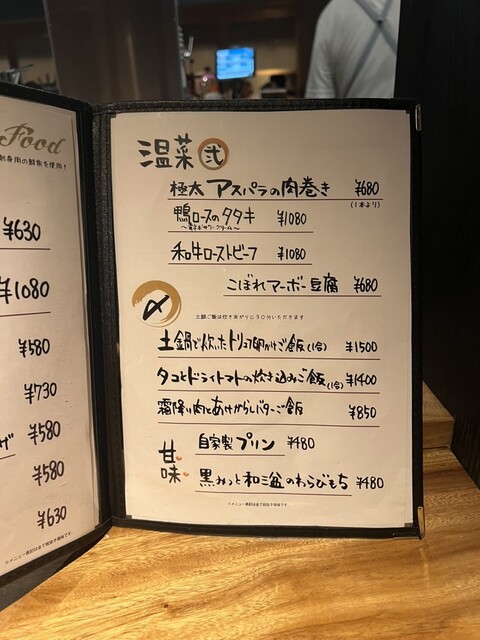 Food
¥630
¥1080
¥580
¥730
ザ ¥580
¥580
¥630
※メニュー表記は全て税抜き価格です。
温菜 弐
極太アスパラの肉巻き ¥680
(1本より)
鴨ロースのタタキ ¥1080
和牛ローストビーフ ¥1080
こぼれマーボー豆腐 ¥680
〆
土鍋ご飯は炊きあがりに30分いただきます
土鍋で炊いたトリュフ卵かけご飯(1合) ¥1500
タコとドライトマトの炊き込みご飯(1合) ¥1400
霜降り肉とあけがらしバターご飯 ¥850
甘味
自家製プリン ¥480
黒みつと和三盆のわらびもち ¥480
※メニュー表記は全て税抜き価格です。